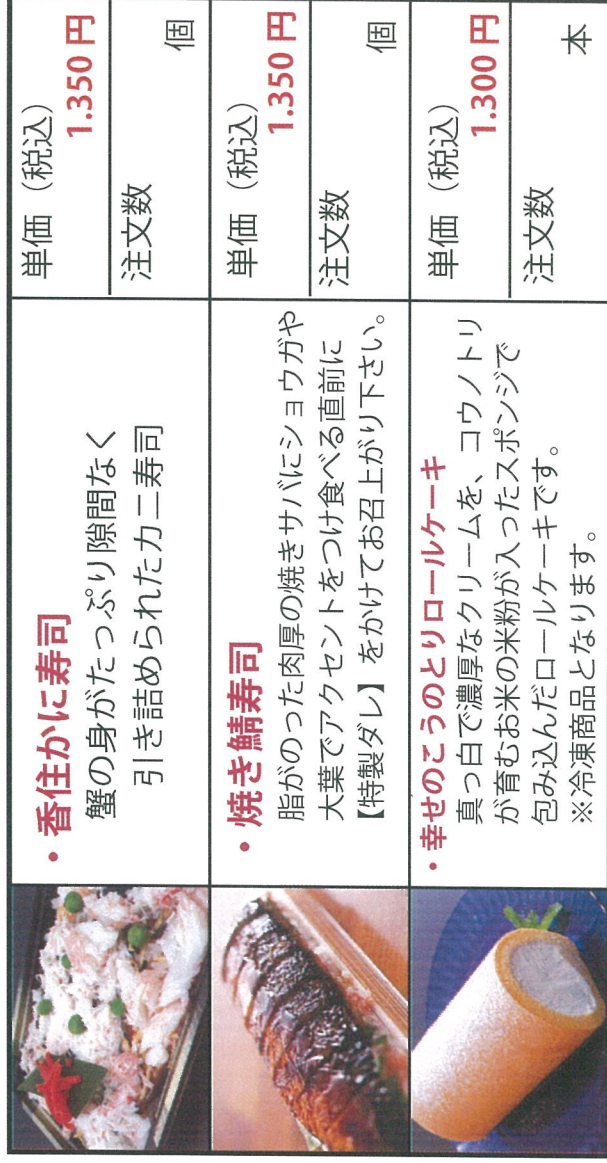 ・香住かに寿司
蟹の身がたっぷり隙間なく
引き詰められたカニ寿司
単価（税込）
1.350 円
注文数
個
・焼き鯖寿司
脂がのった肉厚の焼きサバにショウガや
大葉でアクセントをつけ食べる直前に
【特製ダレ】をかけてお召上がり下さい。
単価（税込）
1.350 円
注文数
個
・幸せのこうのとりロールケーキ
真っ白で濃厚なクリームを、コウノトリ
が育むお米の米粉が入ったスポンジで
包み込んだロールケーキです。
※冷凍商品となります。
単価（税込）
1.300 円
注文数
本